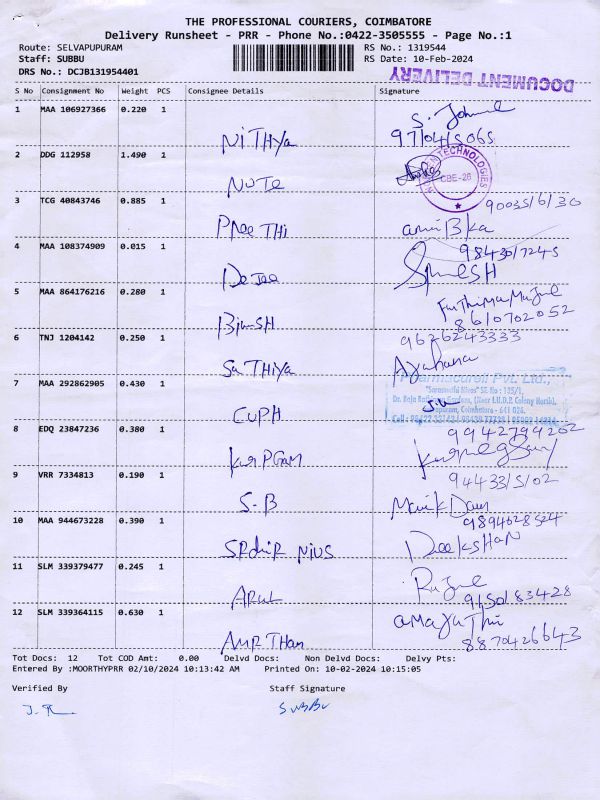 THE PROFESSIONAL COURIERS, COIMBATORE
Delivery Runsheet - PRR - Phone No.:0422-3505555 - Page No.:1
Route: SELVAPUPURAM RS No.: 1319544
Staff: SUBBU RS Date: 10-Feb-2024
DRS No.: DCJB131954401
DOCUMENT DELIVERY
S No Consignment No Weight PCS Consignee Details Signature
1 MAA 106927366 0.220 1
NiTHYa 97104/5065
2 DDG 112958 1.490 1
TECHNOLOGIES
CBE-26
NOTE
3 TCG 40843746 0.885 1 90035/6/30
PReeTHi
4 MAA 108374909 0.015 1 98430/7245
5 MAA 864176216 0.280 1
8610702052
6 TNJ 1204142 0.250 1 9626243333
SaTHiYa
7 MAA 292862905 0.430 1
Pvt. Ltd.,
CUPH
8 EDQ 23847236 0.380 1 9942794202
9 VRR 7334813 0.190 1 94433/5/02
S-B
10 MAA 944673228 0.390 1 9894628524
DeeKSHaN
11 SLM 339379477 0.245 1
ARUL 9150183428
12 SLM 339364115 0.630 1
8870426643
Tot Docs: 12 Tot COD Amt: 0.00 Delvd Docs: Non Delvd Docs: Delvy Pts:
Entered By :MOORTHYPRR 02/10/2024 10:13:42 AM Printed On: 10-02-2024 10:15:05
Verified By Staff Signature
SUBBU